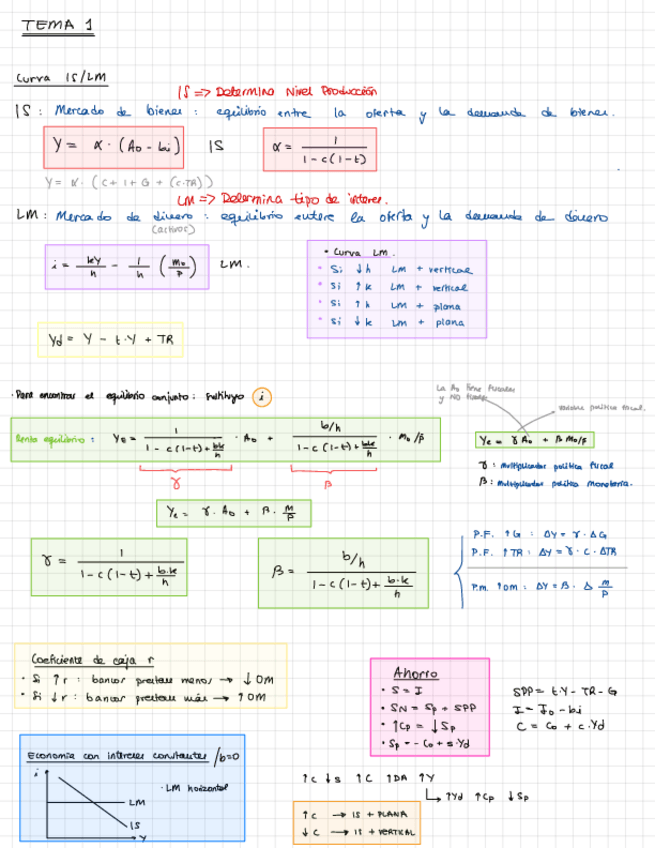 TEMA 1
Curva IS/LM
IS => Determina Nivel Producción
IS: Mercado de bienes: equilibrio entre la oferta y la demanda de bienes.
Y = α · (A₀ - bi) IS α = 1 / (1 - c(1-t))
Y = α · (C + I + G + (c·TR))
LM => Determina tipo de interes.
LM: Mercado de dinero: equilibrio entere la oferta y la demanda de dinero
(activos)
i = kY/h - 1/h (M₀/P) LM.
• Curva LM.
• Si ↓h LM + vertical
• Si ↑k LM + vertical
• Si ↑h LM + plana
• Si ↓k LM + plana
Yd = Y - t·Y + TR
· Para encontrar el equilibrio conjunto: sustituyo i
La A₀ tiene
y NO
variable política fiscal.
Renta equilibrio: Y₀ = 1 / (1 - c(1-t) + bk/h) · A₀ + b/h / (1 - c(1-t) + bk/h) · M₀/P
γ β
Ye = γ A₀ + β M₀/P
γ: multiplicador política fiscal
β: multiplicador política monetaria.
Ye = γ · A₀ + β · M/P
γ = 1 / (1 - c(1-t) + b·k/h)
β = b/h / (1 - c(1-t) + b·k/h)
P.F. ↑G : ΔY = γ · ΔG
P.F. ↑TR : ΔY = γ · c · ΔTR
P.m. ↑OM : ΔY = β · Δ M/P
Coeficiente de caja r
• Si ↑r : bancos prestan menos → ↓OM
• Si ↓r : bancos prestan más → ↑OM
Ahorro
• S = I
• SN = Sp + SPP
• ↑Cp = ↓Sp
• Sp = - Co + s·Yd
SPP = t·Y - TR - G
I = I₀ - bi
C = C₀ + c·Yd
Economía con intereses constantes /b=0
i
· LM horizontal
LM
IS
Y
↑c ↓s ↑C ↑DA ↑Y
↳ ↑Yd ↑Cp ↓Sp
↑c → IS + PLANA
↓c → IS + VERTICAL